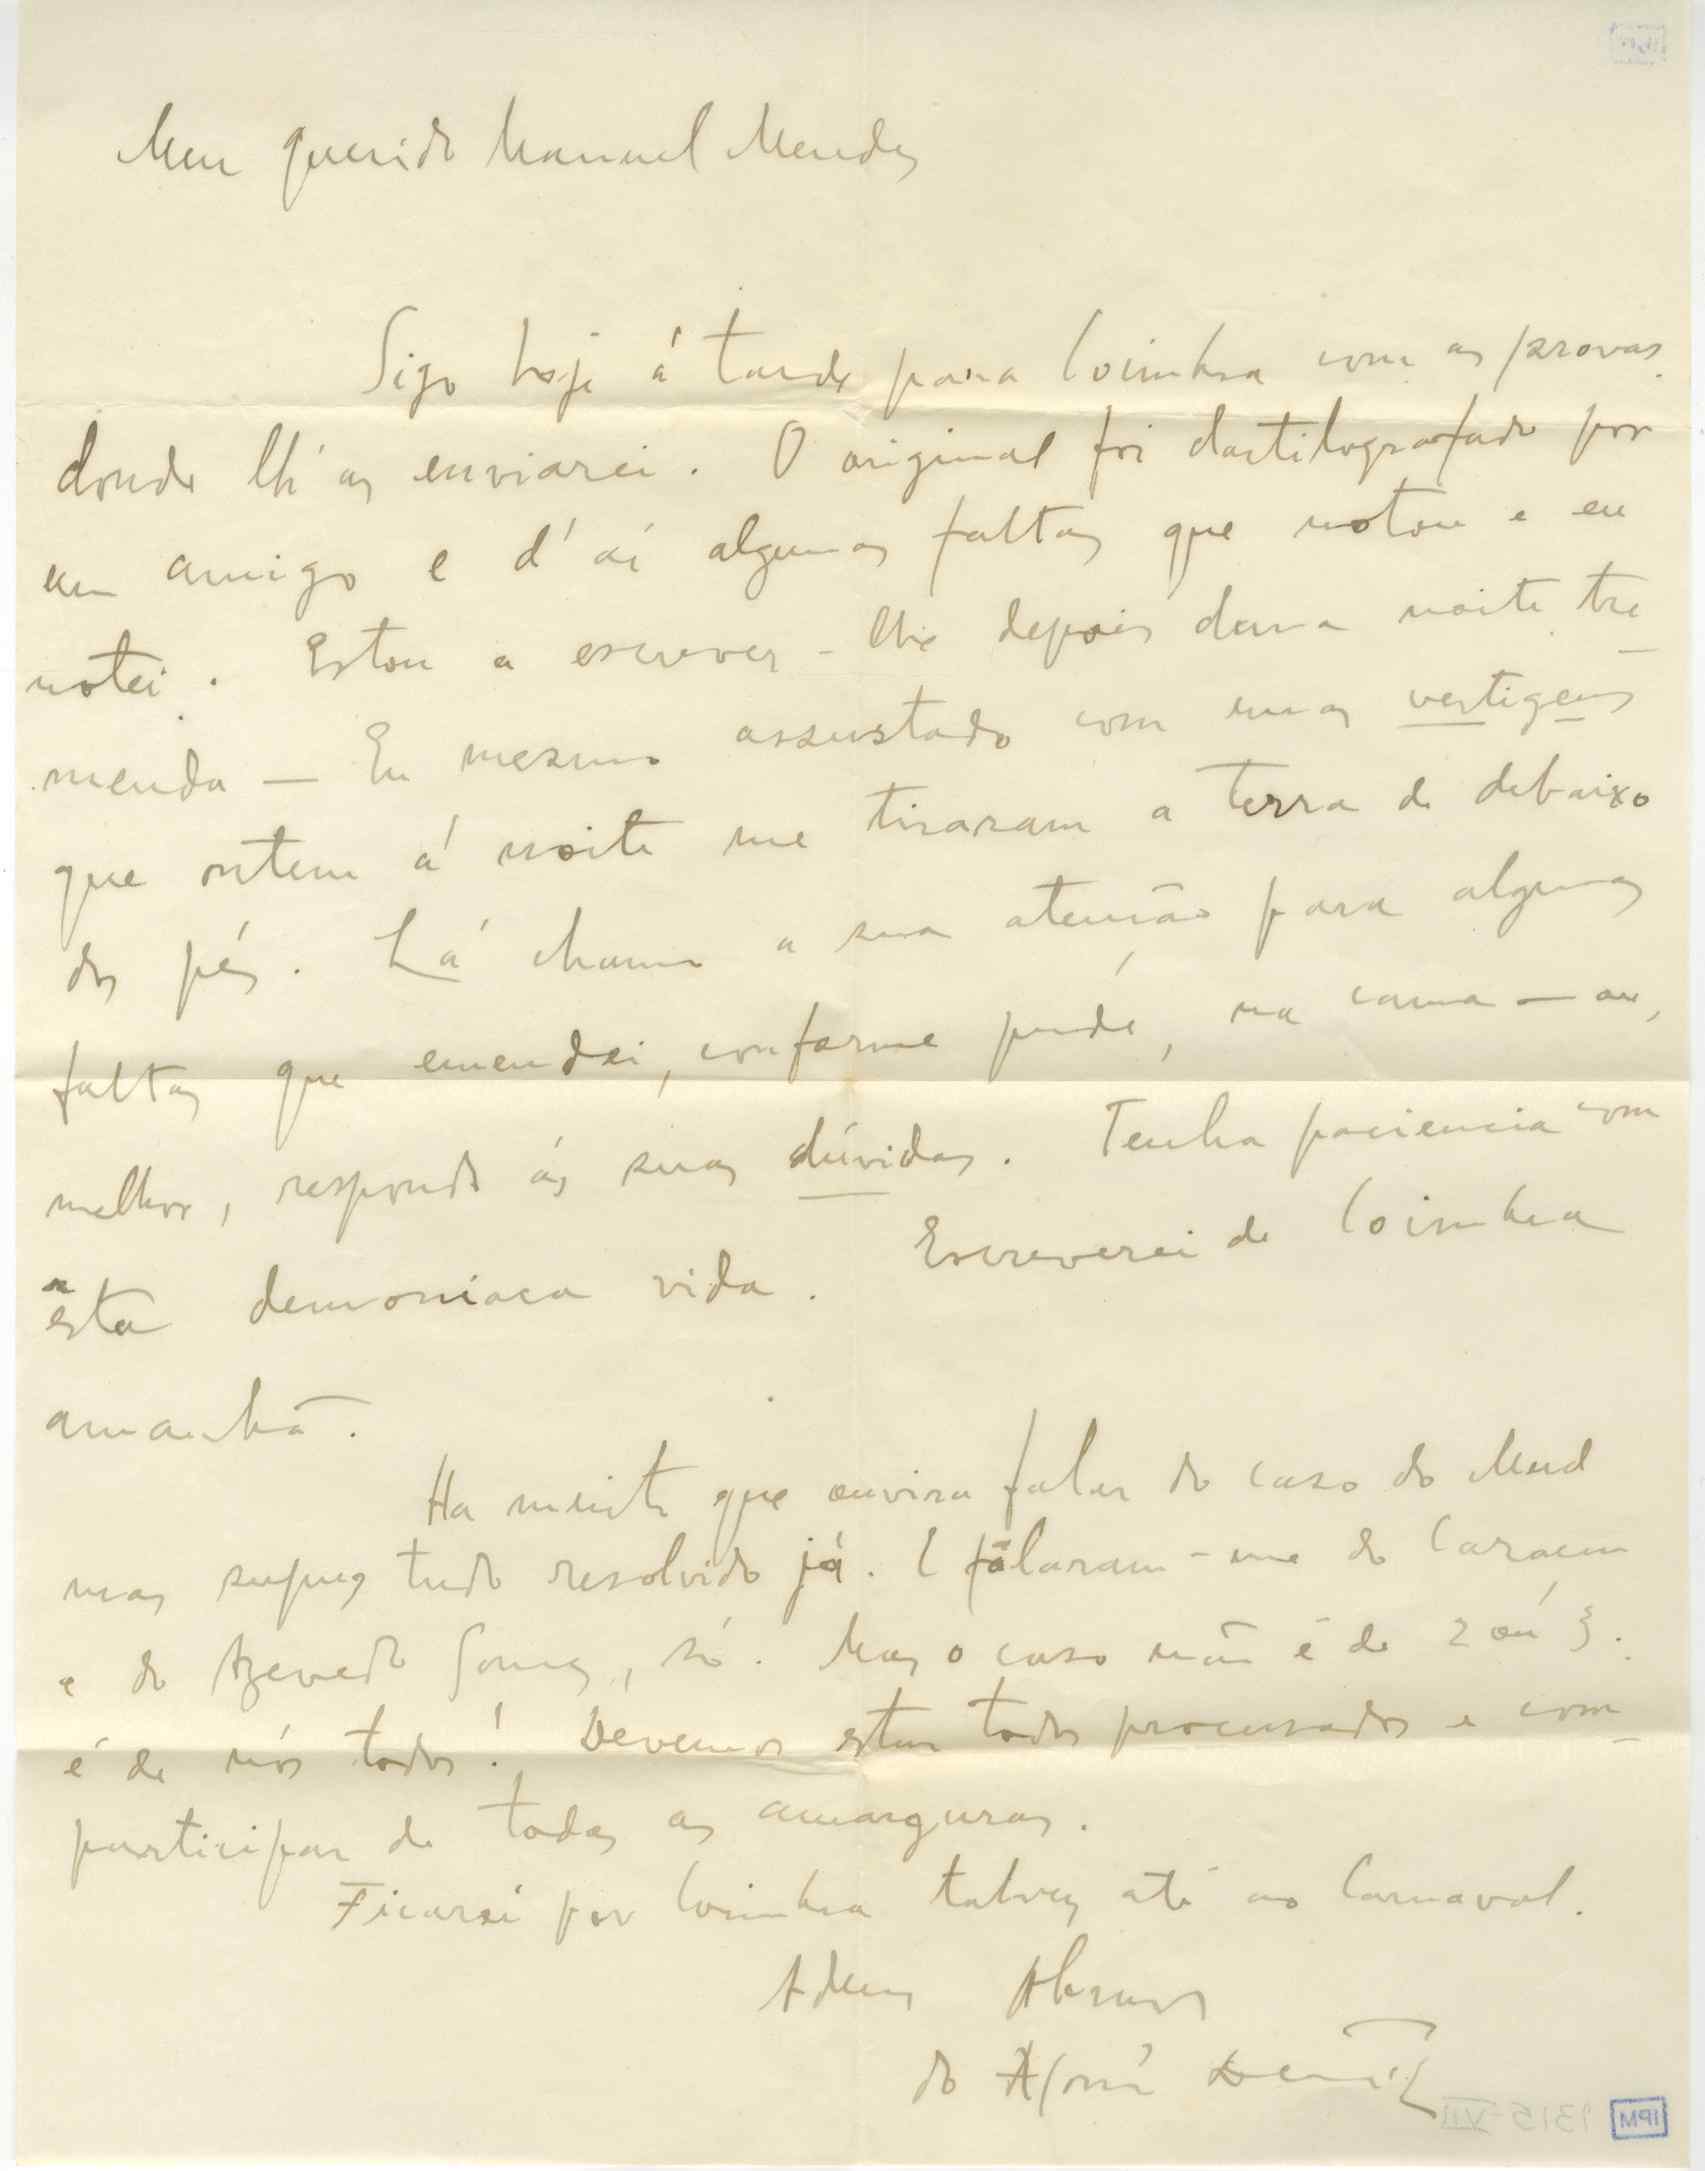 Meu querido Manuel Mendes
Sigo hoje á tarde para Coimbra com as provas
donde lh'as enviarei. O original foi dactilografado por
um amigo e d'aí algumas faltas que notou e eu
notei. Estou a escrever-lhe depois duma noite tre-
menda — Eu mesmo assustado com umas vertigens
que ontem á noite me tiraram a terra de debaixo
dos pés. Lá chamo a sua atenção para algumas
faltas que emendei, conforme pude, na cama — ou,
melhor, respondo ás suas dúvidas. Tenha paciencia com
esta demoníaca vida. Escreverei de Coimbra
amanhã.
Ha muito que ouvira falar do caso do Mud
mas supuz tudo resolvido já. E falaram-me do Caraça
e do Azevedo Gomes, só. Mas o caso não é de 2 ou 3.
é de nós todos! Devemos estar todos procurados e com-
participar de todas as amarguras.
Ficarei por Coimbra talvez até ao Carnaval.
Adeus Abraços
do
1315-VII
IPM